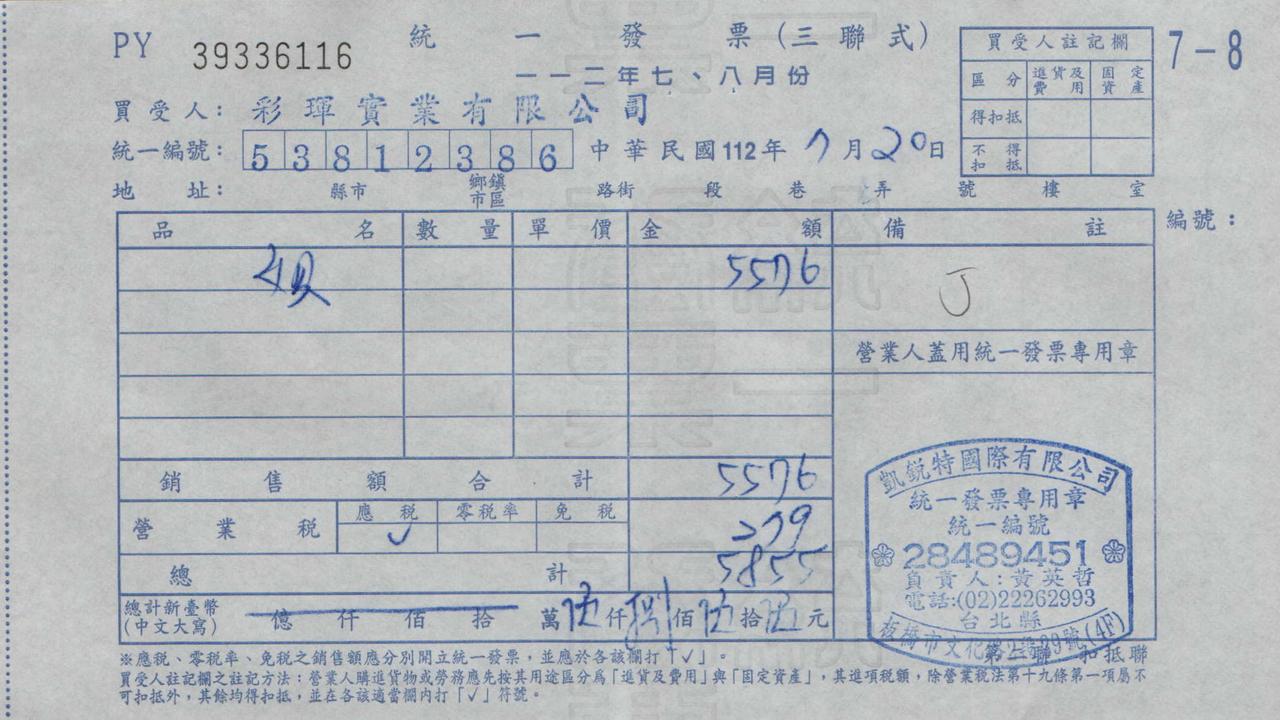 PY 39336116 統一發票(三聯式)
一一二年七、八月份
7-8
買受人註記欄
區分 進貨及費用 固定資產
得扣抵
不得扣抵
買受人: 彩琿實業有限公司
統一編號: 53812386 中華民國112年7月20日
地址: 縣市 鄉鎮市區 路街 段 巷 弄 號 樓 室
編號:
品名 數量 單價 金額 備註
5576 J
營業人蓋用統一發票專用章
銷售額合計 5576
營業稅 應稅 零稅率 免稅 279
✓
總計 5855
總計新臺幣(中文大寫) 億 仟 佰 拾 萬 伍 仟 捌 佰 伍 拾 伍 元
凱銳特國際有限公司
統一發票專用章
統一編號
28489451
負責人:黃英哲
電話:(02)22262993
台北縣
板橋市文化路2段 號(4F)
第二聯 扣抵聯
※應稅、零稅率、免稅之銷售額應分別開立統一發票,並應於各該欄打「✓」。
買受人註記欄之註記方法:營業人購進貨物或勞務應先按其用途區分為「進貨及費用」與「固定資產」,其進項稅額,除營業稅法第十九條第一項屬不
可扣抵外,其餘均得扣抵,並在各該適當欄內打「✓」符號。